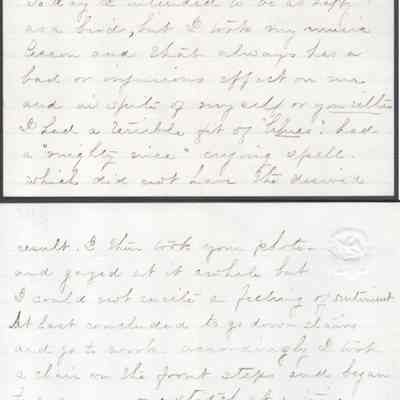 To day I intended to be as happy
as a bird, but I took my music
lesson and that always has a
bad or injurious effect on me
and in spite of myself or
I had a terrible fit of "blues". had
a "mighty nice" crying spell.
which did not have the desired
result. I then took your photo-
and gazed at it awhile but
I could not excite a feeling of
At last concluded to go down stairs
and go to work accordingly I took
a chair on the front steps and began